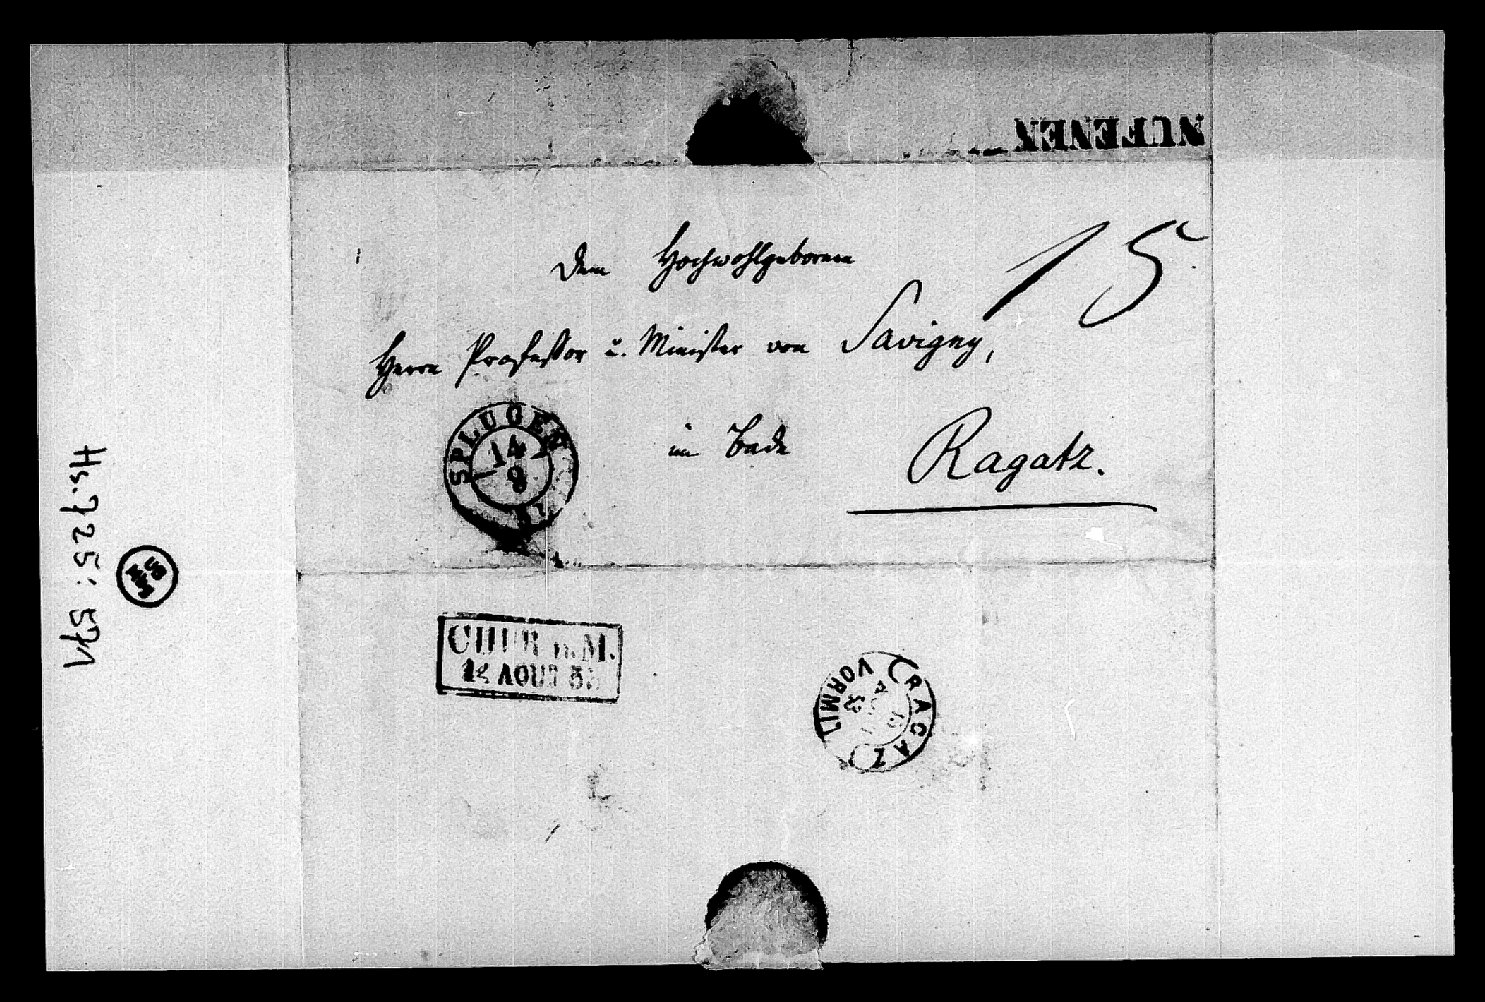 NUFENEN
15
Dem Hochwohlgebornen
Herrn Professor u. Minister von Savigny,
im Bade Ragatz.
SPLUGEN
14
8
CHUR n.M.
AOUT 5
RAGAZ
VORMIT
Hs. 725: 571